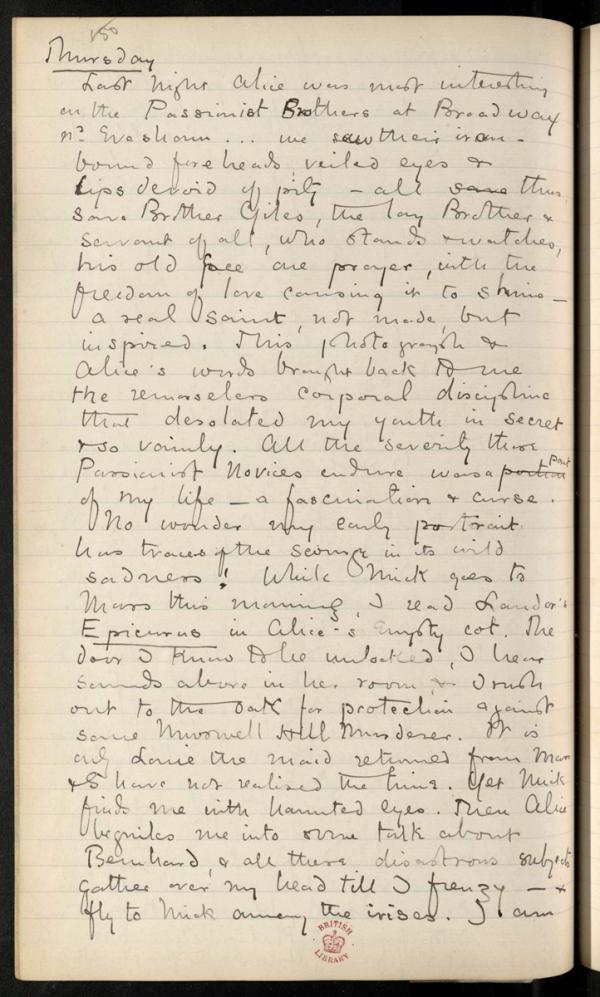 150
Thursday
Last night Alice was most interesting
on the Passionist Brothers at Broadway
nr Evesham ... we saw their iron-
bound foreheads, veiled eyes &
lips devoid of pity – all thus
save Brother Giles, the lay Brother &
servant of all, who stands & watches,
his old face one prayer, with the
freedom of love causing it to shine –
a real Saint, not made, but
inspired. This photograph &
Alice's words brought back to me
the remorseless corporal discipline
that desolated my youth in secret
& so vainly. All the severity these
Passionist Novices endure was a portion part
of my life – a fascination & curse.
No wonder my early portrait
has traces of the scourge in its wild
sadness! While Mick goes to
Mass this morning, I read Landor's
Epicurus in Alice's empty cot. The
door I know to be unlocked, I hear
sounds above in her room, & I rush
out to the oak for protection against
some Muswell Hill Murderer. It is
only the maid returned from Mass
& I have not realised the time. Yet Mick
finds me with haunted eyes. Then Alice
beguiles me into some talk about
Bernhard, & all these disastrous subjects
gather over my head till I frenzy – &
fly to Mick among the irises. I am
BRITISH
LIBRARY